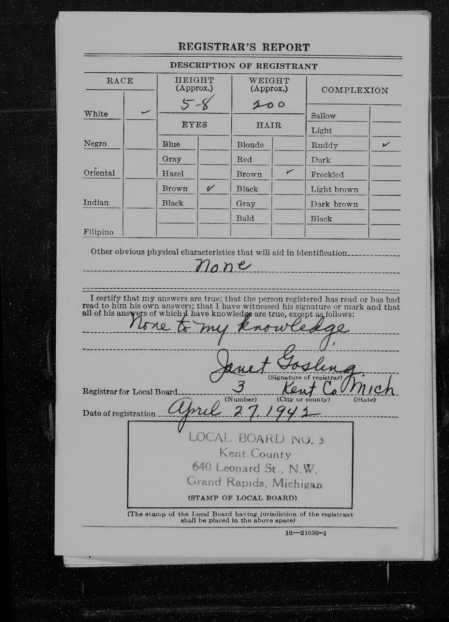 REGISTRAR'S REPORT
DESCRIPTION OF REGISTRANT
RACE
HEIGHT (Approx.)
WEIGHT (Approx.)
COMPLEXION
5-8
200
White ✓
EYES
HAIR
Sallow
Light
Negro
Blue
Blonde
Ruddy ✓
Gray
Red
Dark
Oriental
Hazel
Brown ✓
Freckled
Brown ✓
Black
Light brown
Indian
Black
Gray
Dark brown
Bald
Black
Filipino
Other obvious physical characteristics that will aid in identification
None
I certify that my answers are true; that the person registered has read or has had
read to him his own answers; that I have witnessed his signature or mark and that
all of his answers of which I have knowledge are true, except as follows:
None to my knowledge.
Janet Gosling
(Signature of registrar)
Registrar for Local Board 3 Kent Co Mich
(Number) (City or county) (State)
Date of registration April 27. 1942
LOCAL BOARD NO. 3
Kent County
640 Leonard St., N.W.
Grand Rapids, Michigan
(STAMP OF LOCAL BOARD)
(The stamp of the Local Board having jurisdiction of the registrant
shall be placed in the above space)